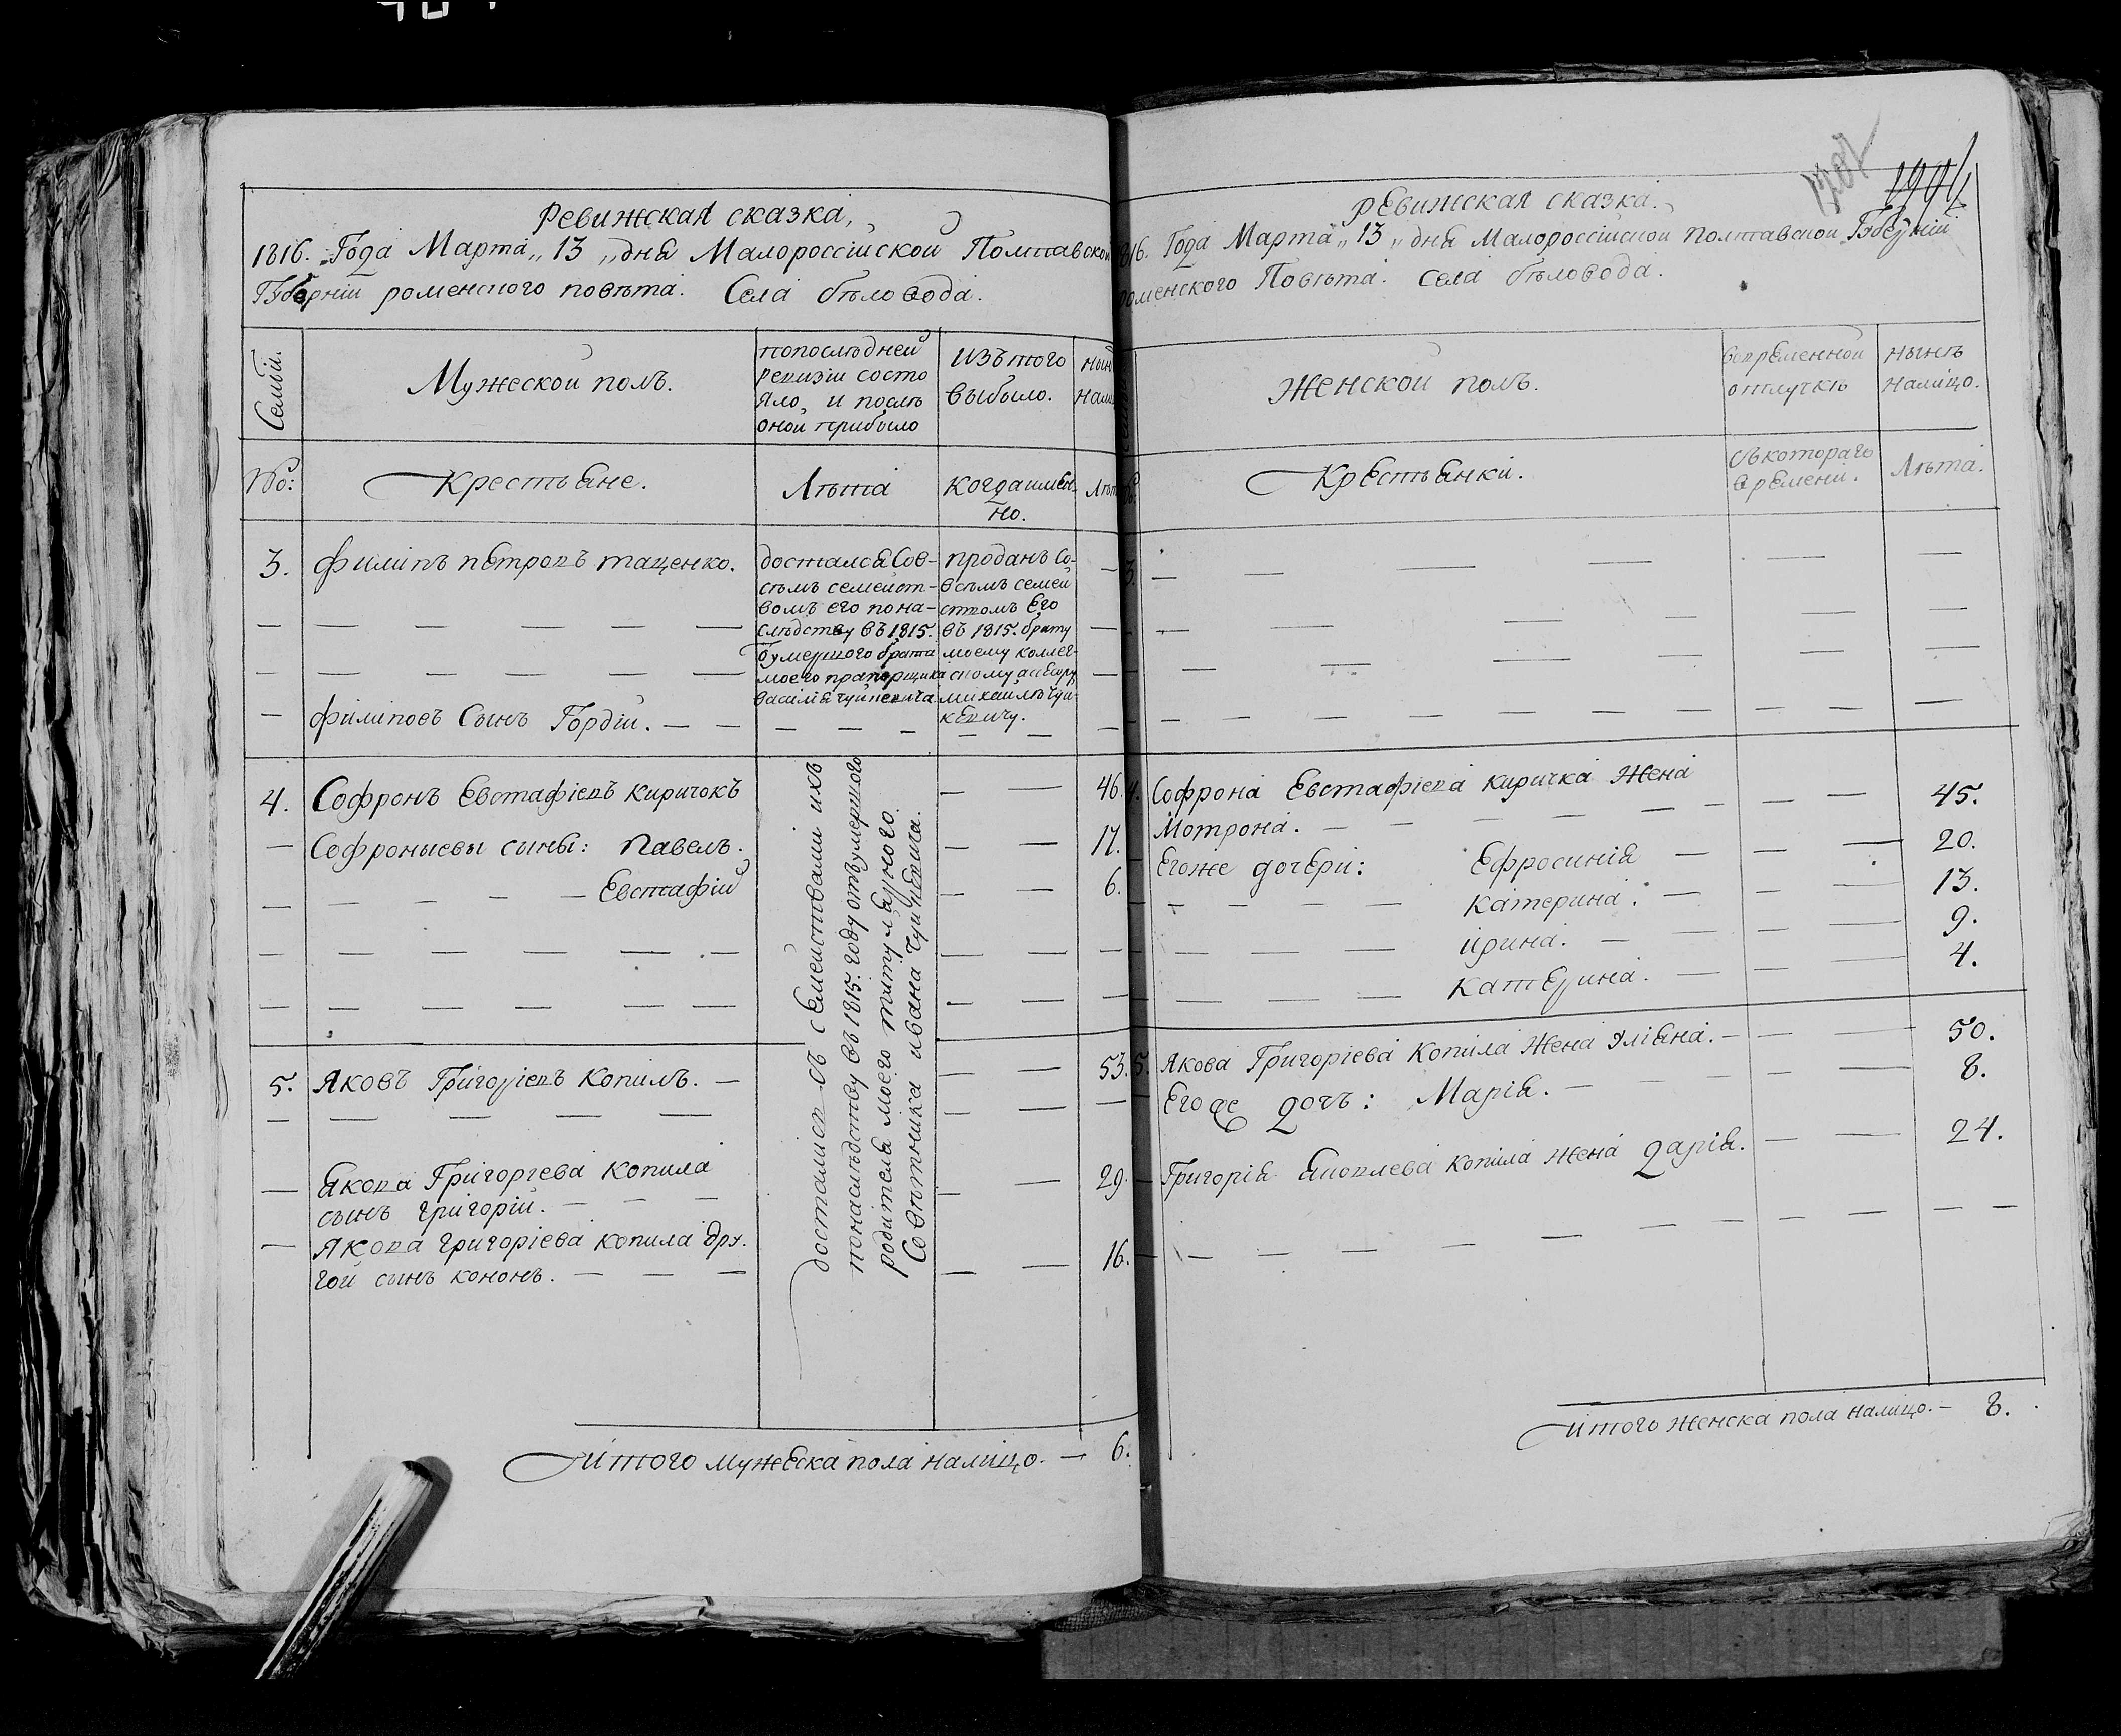 Ревижская сказка,
1816. Года Марта „ 13 „ дня Малороссійской Полтавской
Губерніи роменского повѣта. Села бѣловода.
Семьи.
Мужеской полъ.
попослѣдней
ревизіи состо
яло, и послѣ
оной прибыло
Изътого
выбыло.
нын
нали
№:
Крестьяне.
Лѣта
когдаимен-
но.
Лѣт
3.
филипъ петровъ таценко.
досталсяСов-
сѣмъ семейст-
вомъ его пона-
слѣдству въ 1815.
умершого брата
моего прапорщика
василія чуйкевича
проданъ Со-
всѣмъ семей
ством Его
въ 1815. брату
моему коллег-
скому асесору
михайлѣ чуй-
кевичу.
филиповъ Сынъ Гордій.
4.
Софронъ Евстафіевъ киричокъ
46.
Софроныевы сыны: Павелъ.
17.
Евстафій
6.
достались съ семействами ихъ
понаслѣдству въ 1815. году отъумершого
родителя моего титулярного
Совѣтника ивана Чуйкевича.
5.
Яковъ Григоріевъ Копилъ.
53.
Якова Григоргева Копила
сынъ григорій.
29.
Якова григоріева копила дру.
гой сынъ кононъ.
16.
Итого мужеска пола налицо. — 6.
1302
Ревижская сказка.
816. Года Марта „ 13 „ дня Малороссійской полтавской Губерніи
роменского Повѣта. Села бѣловода.
Женской полъ.
вовременной
отлучкѣ
нынѣ
налицо.
Крестьянки.
съкотораго
времени.
Лѣта.
3.
4.
Софрона Евстафіева киричка Жена
Мотрона.
45.
Егоже дочери: Ефросинія
20.
катерина.
13.
ирина.
9.
катерина.
4.
5.
Якова Григоріева Копила Жена Уліяна.
50.
Егоже дочъ: Марія.
8.
Григорія яковлева копила жена дарія.
24.
Итого женска пола налицо. — 8.